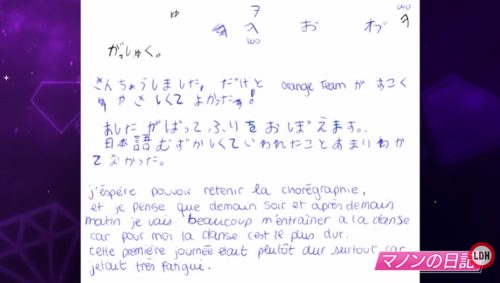 ゅ ヲ お わ" wo ヲ
を wo
がっしゅく。
きんちょうしました, だけど orange Team が すごく
やさしくて よかった!
あしたがばってふりをおぼえます。
日本語むずかしくていわれたことあまりわか
てなかった。
j'éspère pouvoir retenir la chorégraphie,
et je pense que demain soir et après demain
matin je vais beaucoup m'entraîner a la danse
car pour moi la danse c'est le plus dur.
cette première journée était plutôt dur surtout car
j'etait très fatigué.
マノンの日記
LDH